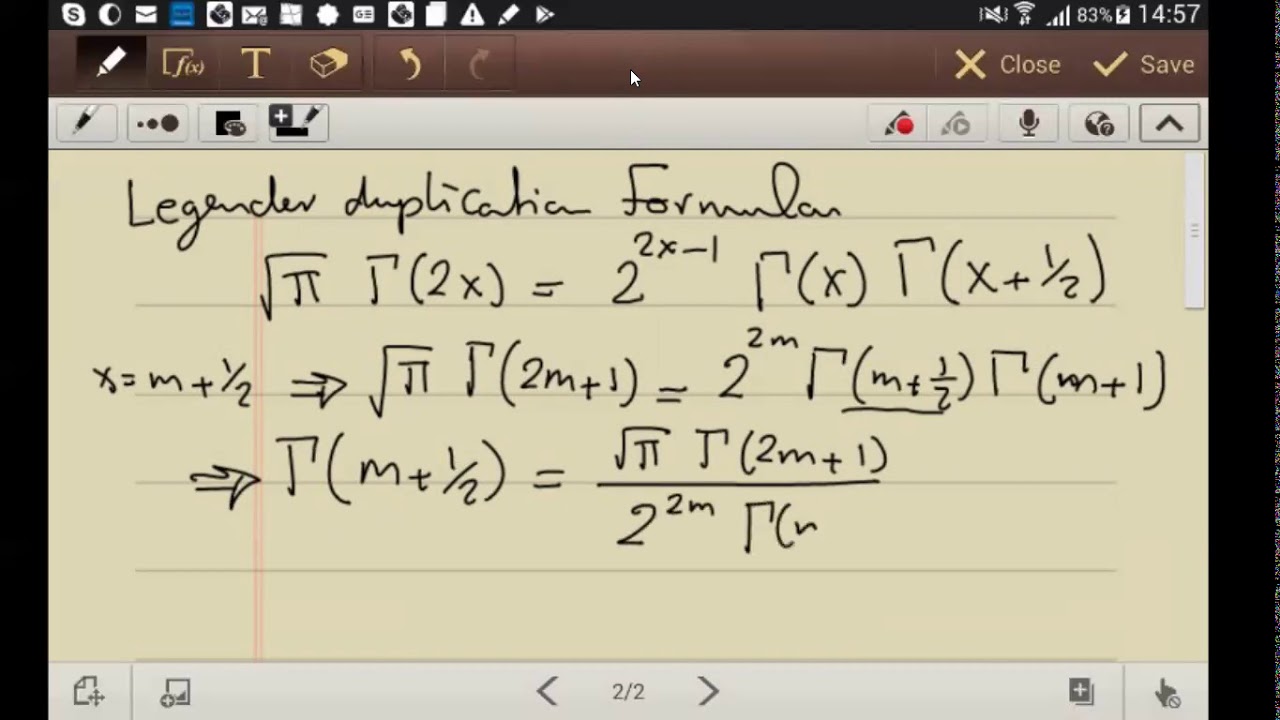 83% 14:57
T Close Save
Legender duplication Formular
√π Γ(2x) = 2^{2x-1} Γ(x) Γ(x+1/2)
x=m+1/2 ⇒ √π Γ(2m+1) = 2^{2m} Γ(m+1/2) Γ(m+1)
⇒ Γ(m+1/2) = √π Γ(2m+1)
2^{2m} Γ(m
2/2